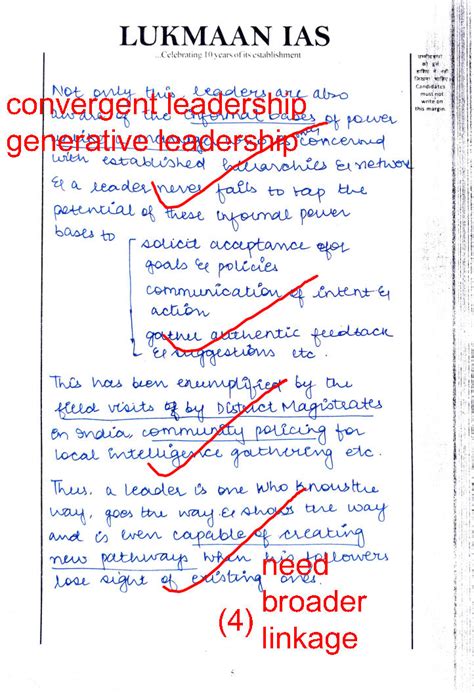 LUKMAAN IAS
...Celebrating 10 years of its establishment
उम्मीदवारों
को इस
हाशिए में नहीं
लिखना चाहिए
Candidates
must not
write on
this margin.
Not only this, leaders are also
convergent leadership
aware of the informal bases of power
generative leadership
concerned
with established hierarchies & network
& a leader never fails to tap the
potential of these informal power
bases to
solicit acceptance for
goals & policies
communication of intent &
action
gather authentic feedback
& suggestions etc.
This has been exemplified by the
field visits of by District Magistrates
in India, community policing for
local intelligence gathering etc.
Thus, a leader is one who knows the
way, goes the way & shows the way
and is even capable of creating
new pathways when his followers
lose sight of existing ones.
need
broader
(4) linkage